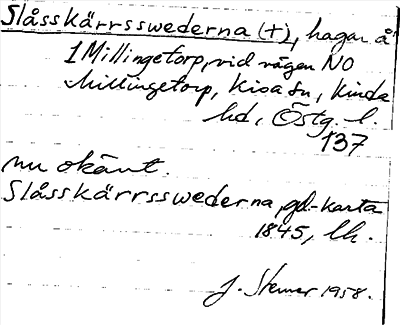 Slåsskärrsswederna (+), hagar å
1 Millingetorp, vid vägen NO
Millingetorp, Kisa sn, Kinda
hd, Östg. l.
137
nu okänt.
Slåsskärrsswederna, gd-karta
1845, lh.
J. Stemer 1958.